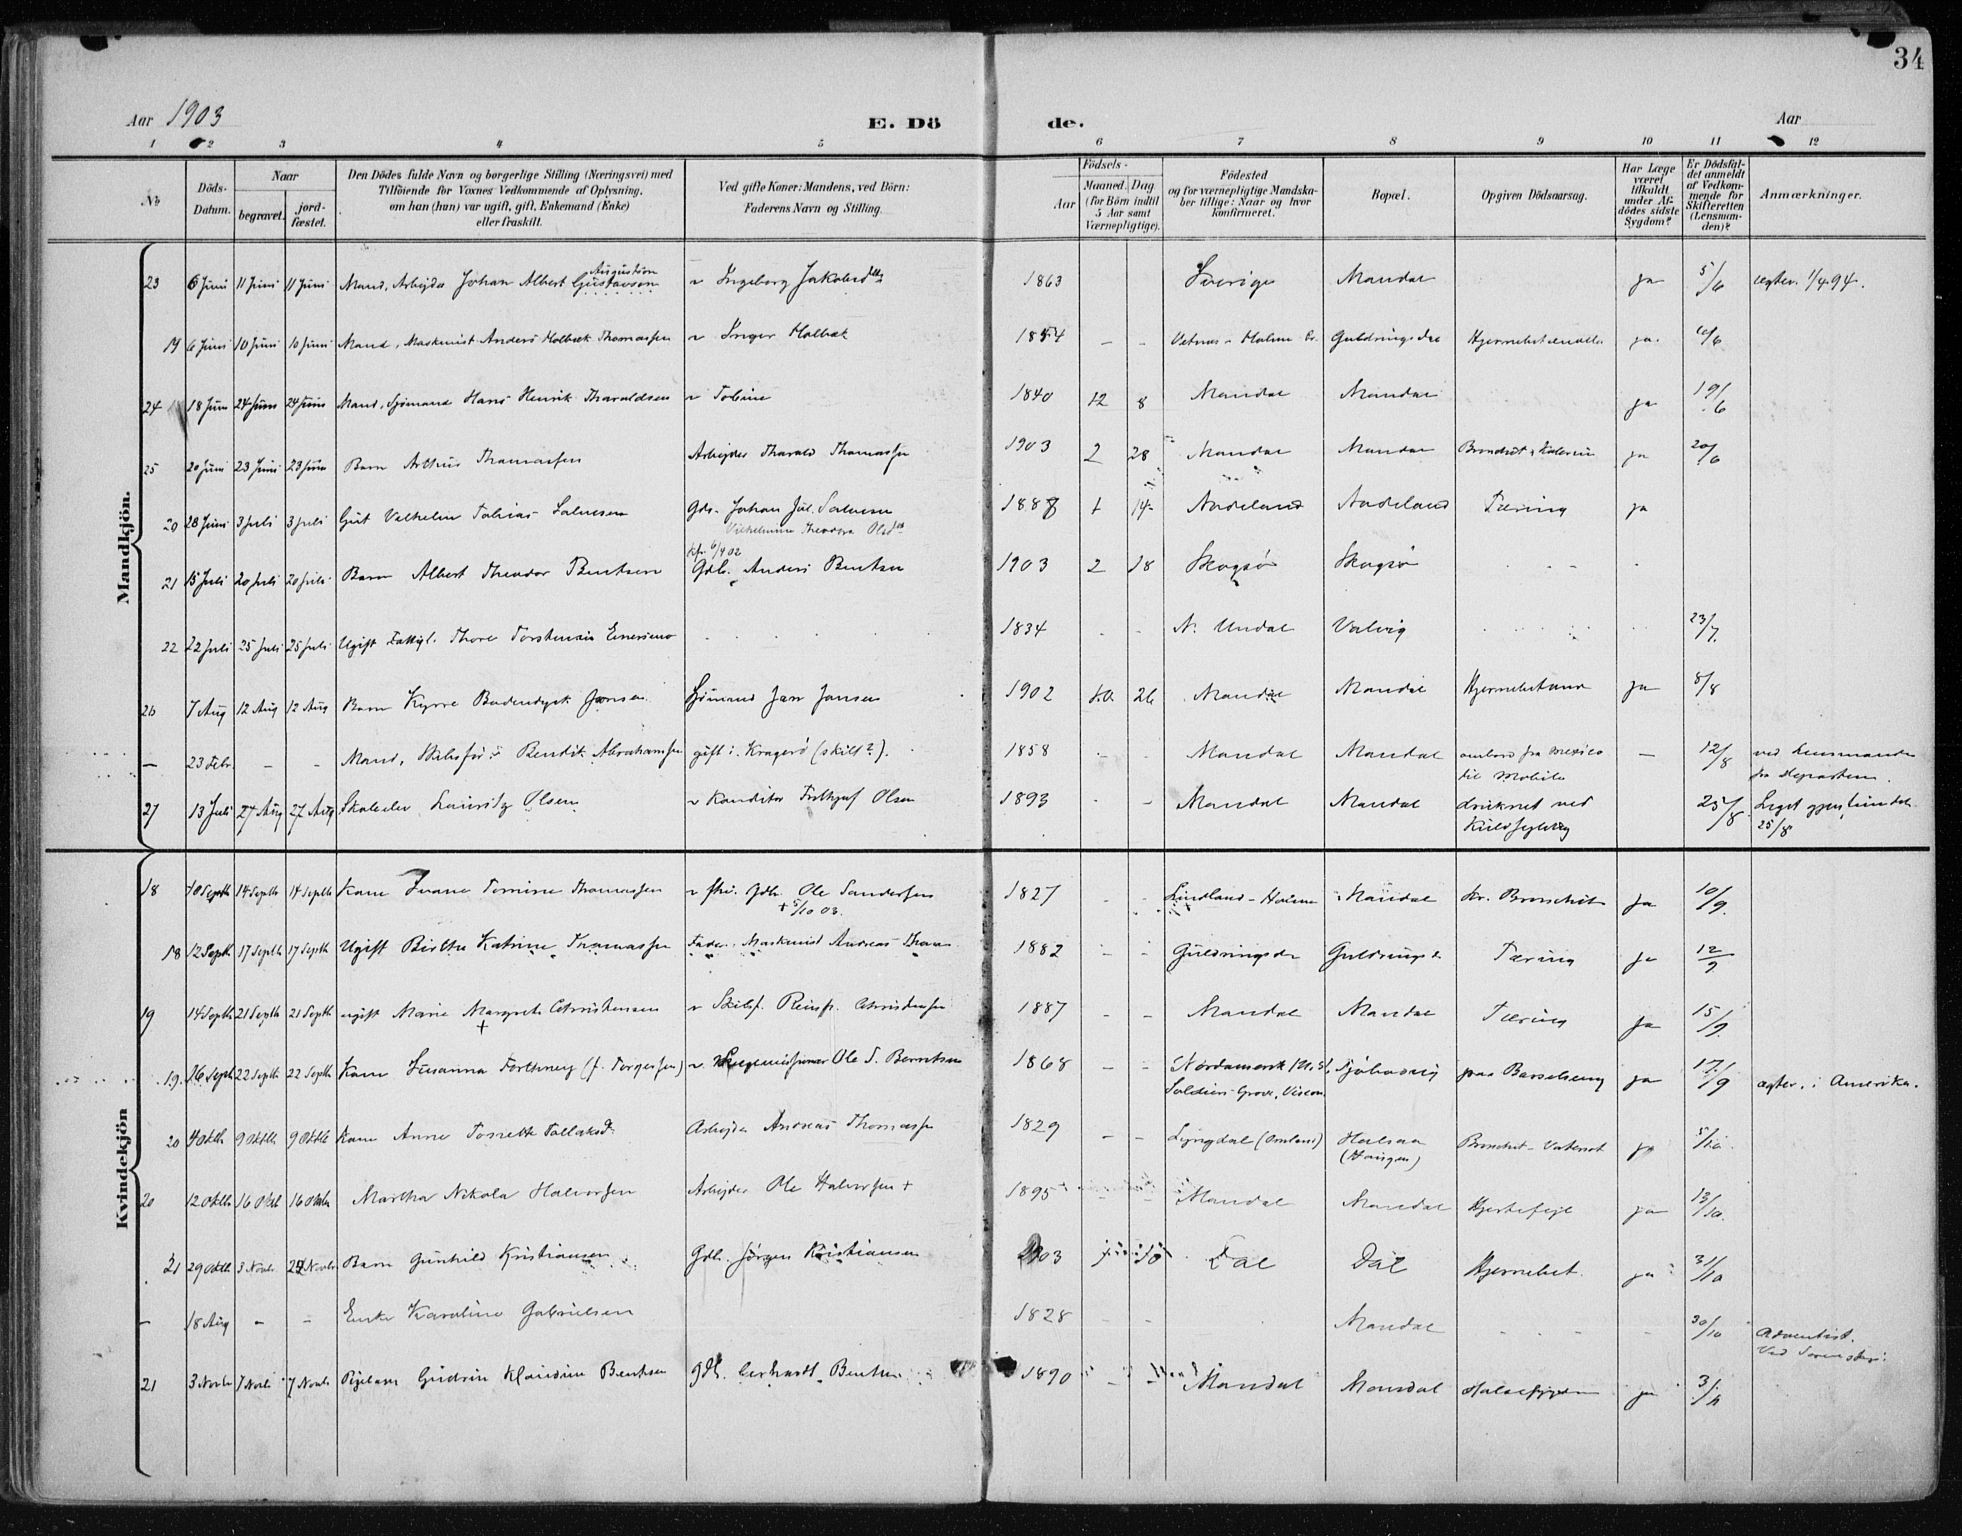 34
Aar 1903
E. Dö de.
Aar
1 2 3 4 5 6 7 8 9 10 11 12
No
Döds-Datum.
Naar
begravet.
jordfæstet.
Den Dödes fulde Navn og borgerlige Stilling (Næringsvei) med
Tilföiende for Voxnes Vedkommende af Oplysning,
om han (hun) var ugift, gift, Enkemand (Enke)
eller fraskilt.
Ved gifte Koner: Mandens, ved Börn:
Faderens Navn og Stilling.
Födsels-
Aar
Maaned. Dag
(for Börn indtil
5 Aar samt
Værnepligtige).
Födested
og for værnepligtige Mandska-
ber tillige: Naar og hvor
konfirmeret.
Bopæl.
Opgiven Dödsaarsag.
Har Læge
været
tilkaldt
under Af-
dödes sidste
Sygdom?
Er Dödsfal-
det anmeldt
af Vedkom-
mende for
Skifteretten
(Lensman-
den)?
Anmærkninger.
Mandkjön.
Augustion
23 6 Juni 11 Juni 11 Juni Mand, Arbejder Johan Albert Gustavson Ingeborg Jakobsdtr 1863 Sverige Mandal ja 5/6 egtev. 1/4 94.
19 6 Juni 10 Juni 10 Juni Mand, Maskinist Anders Holbæk Thomassen Inger Holbæk 1854 - - Holme Guldringsdal ja 10/6
24 18 Juni 24 Juni 24 Juni Mand, Sjömand Hans Henrik Tharaldsen Tobine 1840 12 8 Mandal Mandal ja 19/6
25 20 Juni 23 Juni 23 Juni Barn Arthur Thomassen Arbejder Tharald Thomassen 1903 2 28 Mandal Mandal ja 20/6
20 28 Juni 3 Juli 3 Juli Gut Vilhelm Tobias Salvesen Gdb. Johan Jul. Salvesen 1888 1 14 Aadeland Aadeland Tæring ja
Vilhelmine Theodora Olsdtr
Kfr. 6/4 02
21 15 Juli 20 Juli 20 Juli Barn Albert Theodor Bentsen Gdb. Anders Bentsen 1903 2 18 Skogsö Skogsö
22 22 Juli 25 Juli 25 Juli Ugift Fattigl. Thore Torstensen 1834 - - N. Undal Valvig 23/7.
26 7 Aug 12 Aug 12 Aug Barn Kyrre Jansen Sjömand Jan Jansen 1902 10 26 Mandal Mandal ja 8/8
- 23 Febr. - - Mand, Skibsför. Bendik Abrahamsen gift i Kragerö (skilt?). 1858 - - Mandal Mandal ombord fra Mexico - 12/8 ved Lensmanden
til Mobile fra Departem.
27 13 Juli 27 Aug 27 Aug Skoleelev Lauritz Olsen Konditor Fridthjof Olsen 1893 - - Mandal Mandal druknet ved 25/8 Liget gjenfundet
Kuldsejling 25/8
Kvindekjön
18 10 Septb 14 Septb 14 Septb Kone Tomine Thomassen Gdb. Ole Sandersen 1827 - - Lindland - Holme Mandal kr. Bronchit ja 10/9.
+ 5/10 03.
18 12 Septb 17 Septb 17 Septb Ugift Birthe Katrine Thomassen Fader: Maskinist Andreas Thom 1882 - - Guldringsdal Guldringsd Tæring ja 12/9
19 14 Septb 21 Septb 21 Septb ugift Marie Margrete Christensen Skibsf. Christensen 1887 - - Mandal Mandal Tæring ja 15/9.
+
19. 16 Septb 22 Septb 22 Septb Kone Susanna (f. Torgersen) Ole T. Berntsen 1868 - - Nordamerik paa Barselseng ja 17/9 egtev. i Amerika.
Soldiers Grove, Viscon.
20 4 Oktb 9 Oktb 9 Oktb Kone Anne Tonette Tollaksd. Arbejder Andreas Thomassen 1829 - - Lyngdal Halsaa Bronchit ja 5/10
20 12 Oktb 16 Oktb 16 Oktb Martha Nikola Halvorsen Arbejder Ole Halvorsen + 1895 Mandal Mandal Hjertefejl ja 13/10.
21 29 Oktb 3 Novb Novb Barn Gunhild Kristiansen Gdb. Jörgen Kristiansen 1903 10 Dal Dal Hjernebet. ja 31/10
- 18 Aug - - Enke Karoline Gabrielsen 1828 - - Mandal - - - 30/10 Adventist.
21 3 Novb 7 Novb 7 Novb Pigebarn Gudrun Klaudine Bentsen Gdb. Gerhardt Bentsen 1890 - - Mandal Mandal ja 3/11